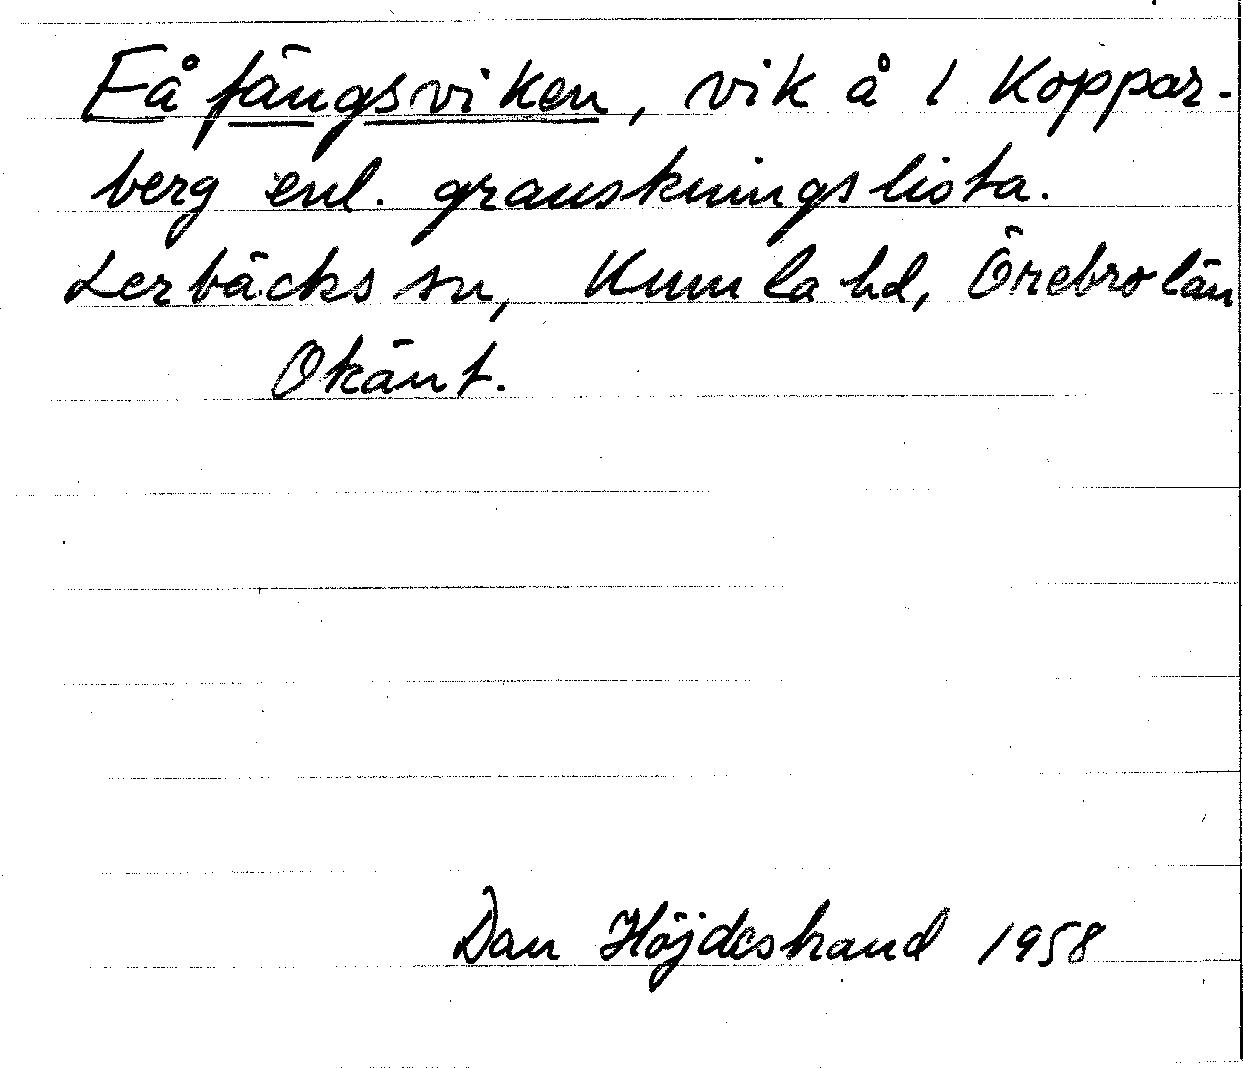 Fåfängsviken, vik å 1 Koppar-
berg enl. granskningslista.
Lerbäcks sn, Kumla hd, Örebro län
Okänt.
Dan Höjdestrand 1958